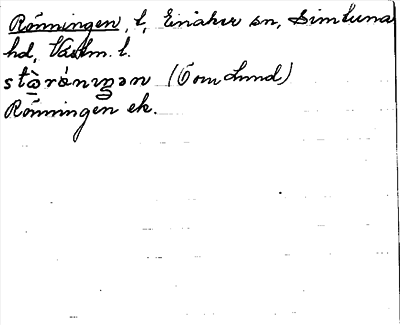 Rönningen, t, Enåker sn, Simtuna
hd, Västm. l.
(Tom Lund)
Rönningen ek.